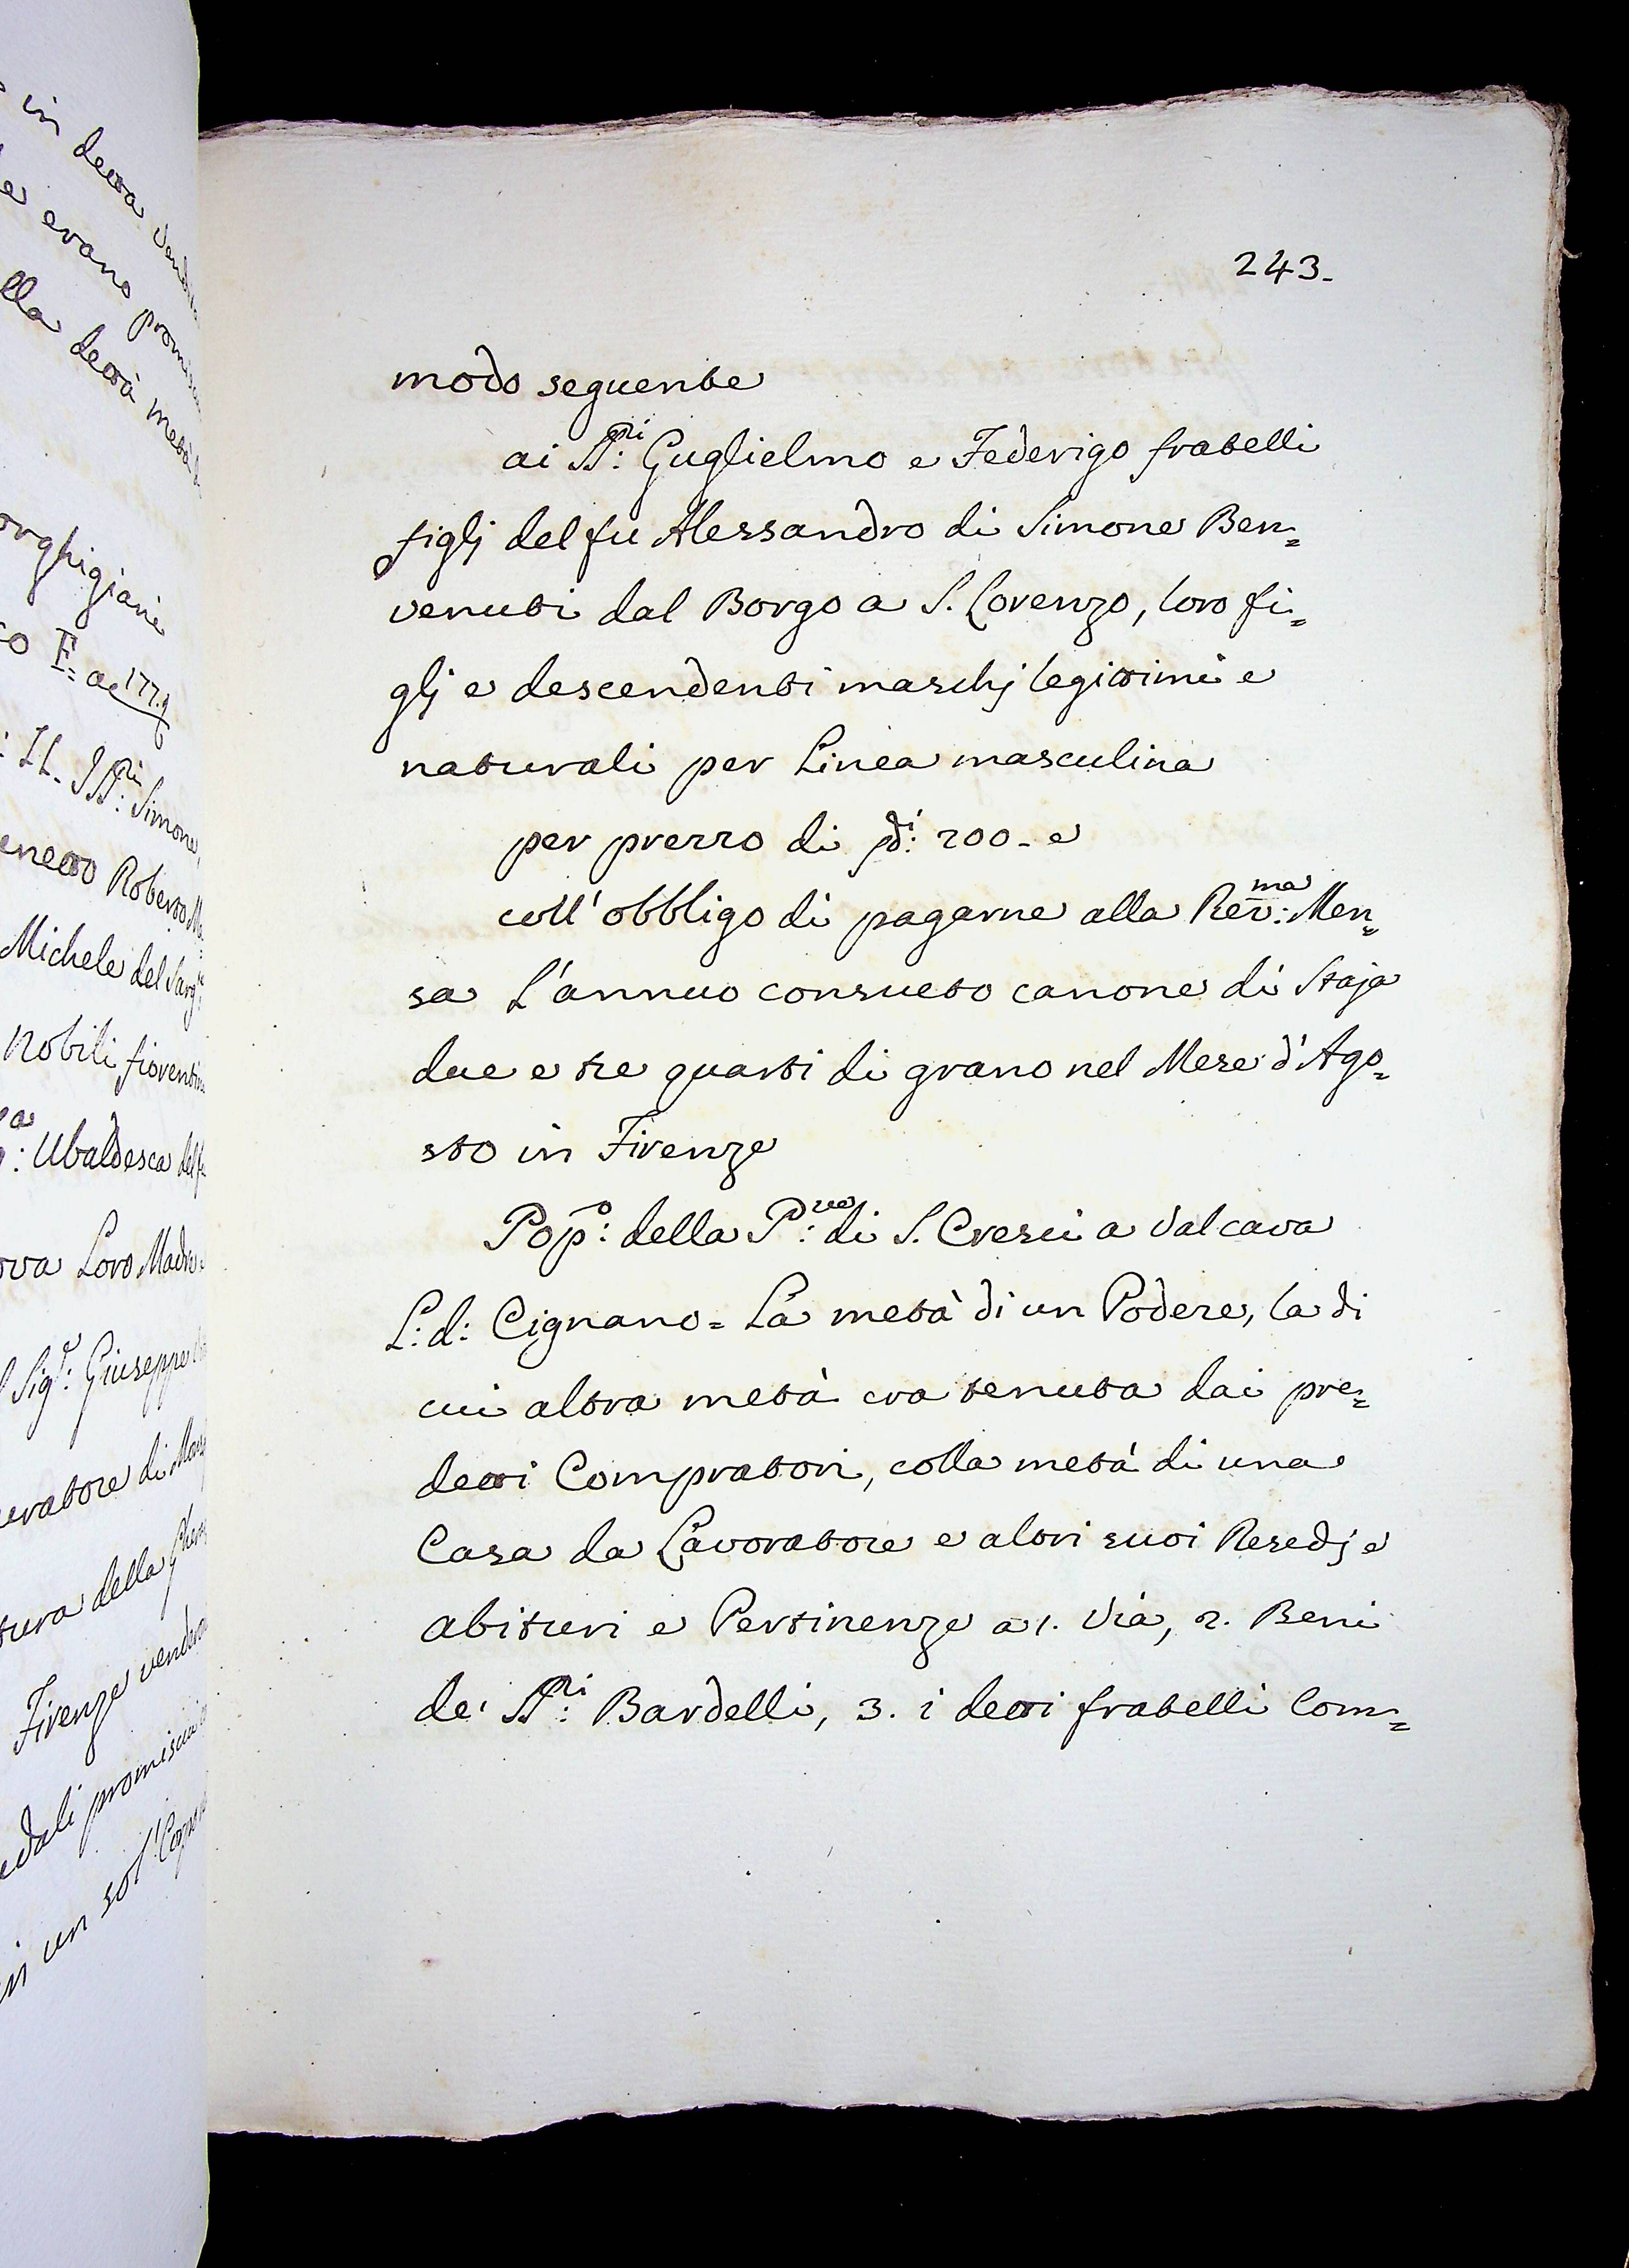 in detta vend
e erano promis
lla detta metà
orghigiani
co F. a c 177.
: Ill. SS.ri Simone,
enetto Roberto M
Michele del Sarg.
Nobili fiorentin
a: Ubaldesca del f
ova Loro Madre
l Sig.r: Giuseppe
curatore di Mons
tura della
Firenze vendero
edali promiscui
in un sol' Corpo
243.
modo seguente
ai SS.ri: Guglielmo e Federigo fratelli
figlj del fu Alessandro di Simone Ben=
venuti dal Borgo a S. Lorenzo, loro fi=
glj e descendenti maschj legittimi e
naturali per Linea masculina
per prezzo di di: 200. e
coll' obbligo di pagarne alla Rev:ma Men=
sa L'annuo consueto canone di Staja
due e tre quarti di grano nel Mese d'Ago=
sto in Firenze
Pop:o della P:ve di S. Cresci a Valcava
L: d: Cignano = La metà di un Podere, la di
cui altra metà era tenuta dai pre=
detti Compratori, colla metà di una
Casa da Lavoratore e altri suoi Resedj e
abituri e Pertinenze a 1. Via, 2. Beni
de' SS.ri: Bardelli, 3. i detti fratelli Com=